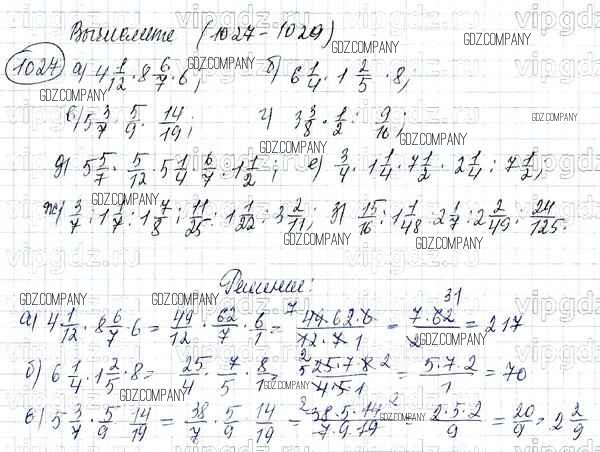 Вычислите (1027-1029)
1027 а) 4 1/12 · 8 6/7 · 6; б) 6 1/4 · 1 2/5 · 8;
в) 5 3/7 · 5/9 · 14/19; г) 3 3/8 · 1/2 : 9/16;
д) 5 5/7 · 5/12 · 5 1/4 · 6/7 · 1 1/2; е) 3/4 · 1 1/4 · 7 1/2 · 2 1/4 : 7 1/2;
ж) 3/7 : 1 1/7 : 1 7/8 : 11/25 : 1 1/22 : 3 2/11; з) 15/16 : 1 1/48 · 2 1/7 : 2 2/49 · 24/125.
Решение:
а) 4 1/12 · 8 6/7 · 6 = 49/12 · 62/7 · 6/1 = 7 49·62·6/12·7·1 = 7·62 31/2 = 217
б) 6 1/4 · 1 2/5 · 8 = 25/4 · 7/5 · 8/1 = 5 25·7·8 2/4·5·1 = 5·7·2/1 = 70
в) 5 3/7 · 5/9 · 14/19 = 38/7 · 5/9 · 14/19 = 2 38·5·14 2/7·9·19 = 2·5·2/9 = 20/9 = 2 2/9